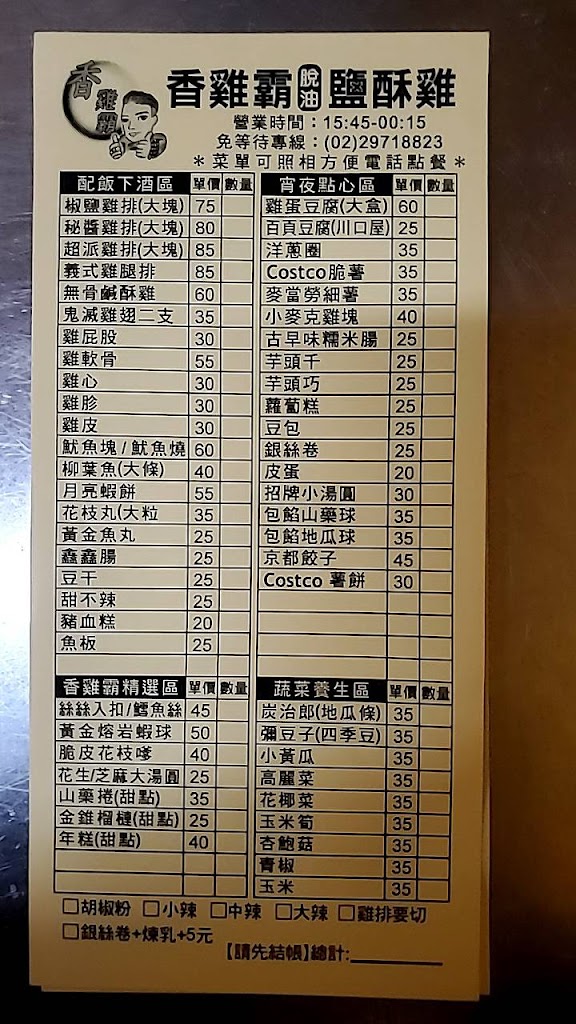 香雞霸
香雞霸脫油鹽酥雞
營業時間：15:45-00:15
免等待專線：(02)29718823
＊菜單可照相方便電話點餐＊
配飯下酒區 單價 數量
椒鹽雞排(大塊) 75
秘醬雞排(大塊) 80
超派雞排(大塊) 85
義式雞腿排 85
無骨鹹酥雞 60
鬼滅雞翅二支 35
雞屁股 30
雞軟骨 55
雞心 30
雞胗 30
雞皮 30
魷魚塊/魷魚燒 60
柳葉魚(大條) 40
月亮蝦餅 55
花枝丸(大粒 35
黃金魚丸 25
鑫鑫腸 25
豆干 25
甜不辣 25
豬血糕 20
魚板 25
宵夜點心區 單價 數量
雞蛋豆腐(大盒) 60
百頁豆腐(川口屋) 25
洋蔥圈 35
Costco脆薯 35
麥當勞細薯 35
小麥克雞塊 40
古早味糯米腸 25
芋頭千 25
芋頭巧 25
蘿蔔糕 25
豆包 25
銀絲卷 25
皮蛋 20
招牌小湯圓 30
包餡山藥球 35
包餡地瓜球 35
京都餃子 45
Costco 薯餅 30
香雞霸精選區 單價 數量
絲絲入扣/鱈魚絲 45
黃金熔岩蝦球 50
脆皮花枝嗲 40
花生/芝麻大湯圓 25
山藥捲(甜點) 35
金錐榴槤(甜點) 25
年糕(甜點) 40
蔬菜養生區 單價 數量
炭治郎(地瓜條) 35
彌豆子(四季豆) 35
小黃瓜 35
高麗菜 35
花椰菜 35
玉米筍 35
杏鮑菇 35
青椒 35
玉米 35
□胡椒粉 □小辣 □中辣 □大辣 □雞排要切
□銀絲卷+煉乳+5元
【請先結帳】總計: